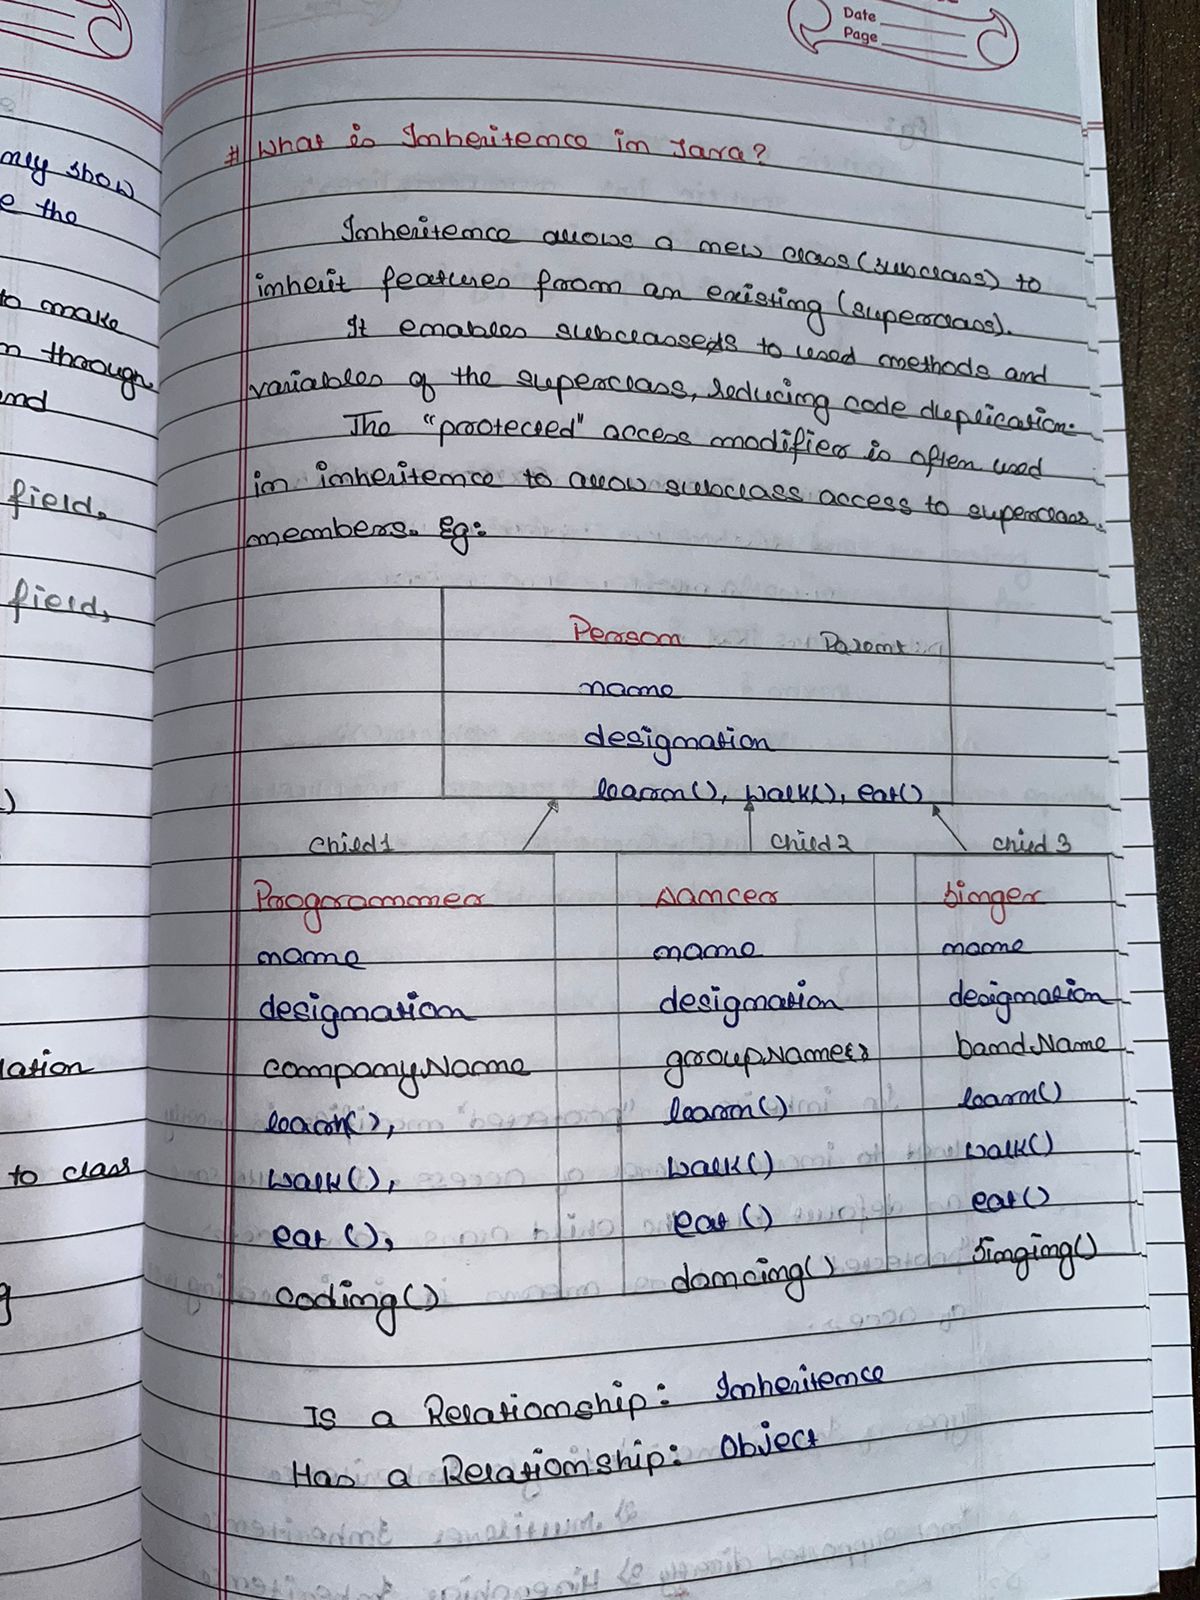 Date
Page
ney show
e the
to make
n through
end
field,
field,
lation
to class
# What is Inheritence in Java?
Inheritence allows a new class (subclass) to
inherit features from an existing (superclass).
It enables subclasseds to used methods and
variables of the superclass, reducing code duplication.
The "protected" access modifier is often used
in inheritence to allow subclass access to superclass
members. Eg:
Person Parent
name
designation
learn(), walk(), eat()
Child 1 Child 2 Child 3
Programmer Dancer Singer
name name name
designation designation designation
companyName groupName band.Name
learn(), learn() learn()
walk(), walk() walk()
eat(), eat() eat()
coding() dancing() Singing()
Is a Relationship: Inheritence
Has a Relationship: Object